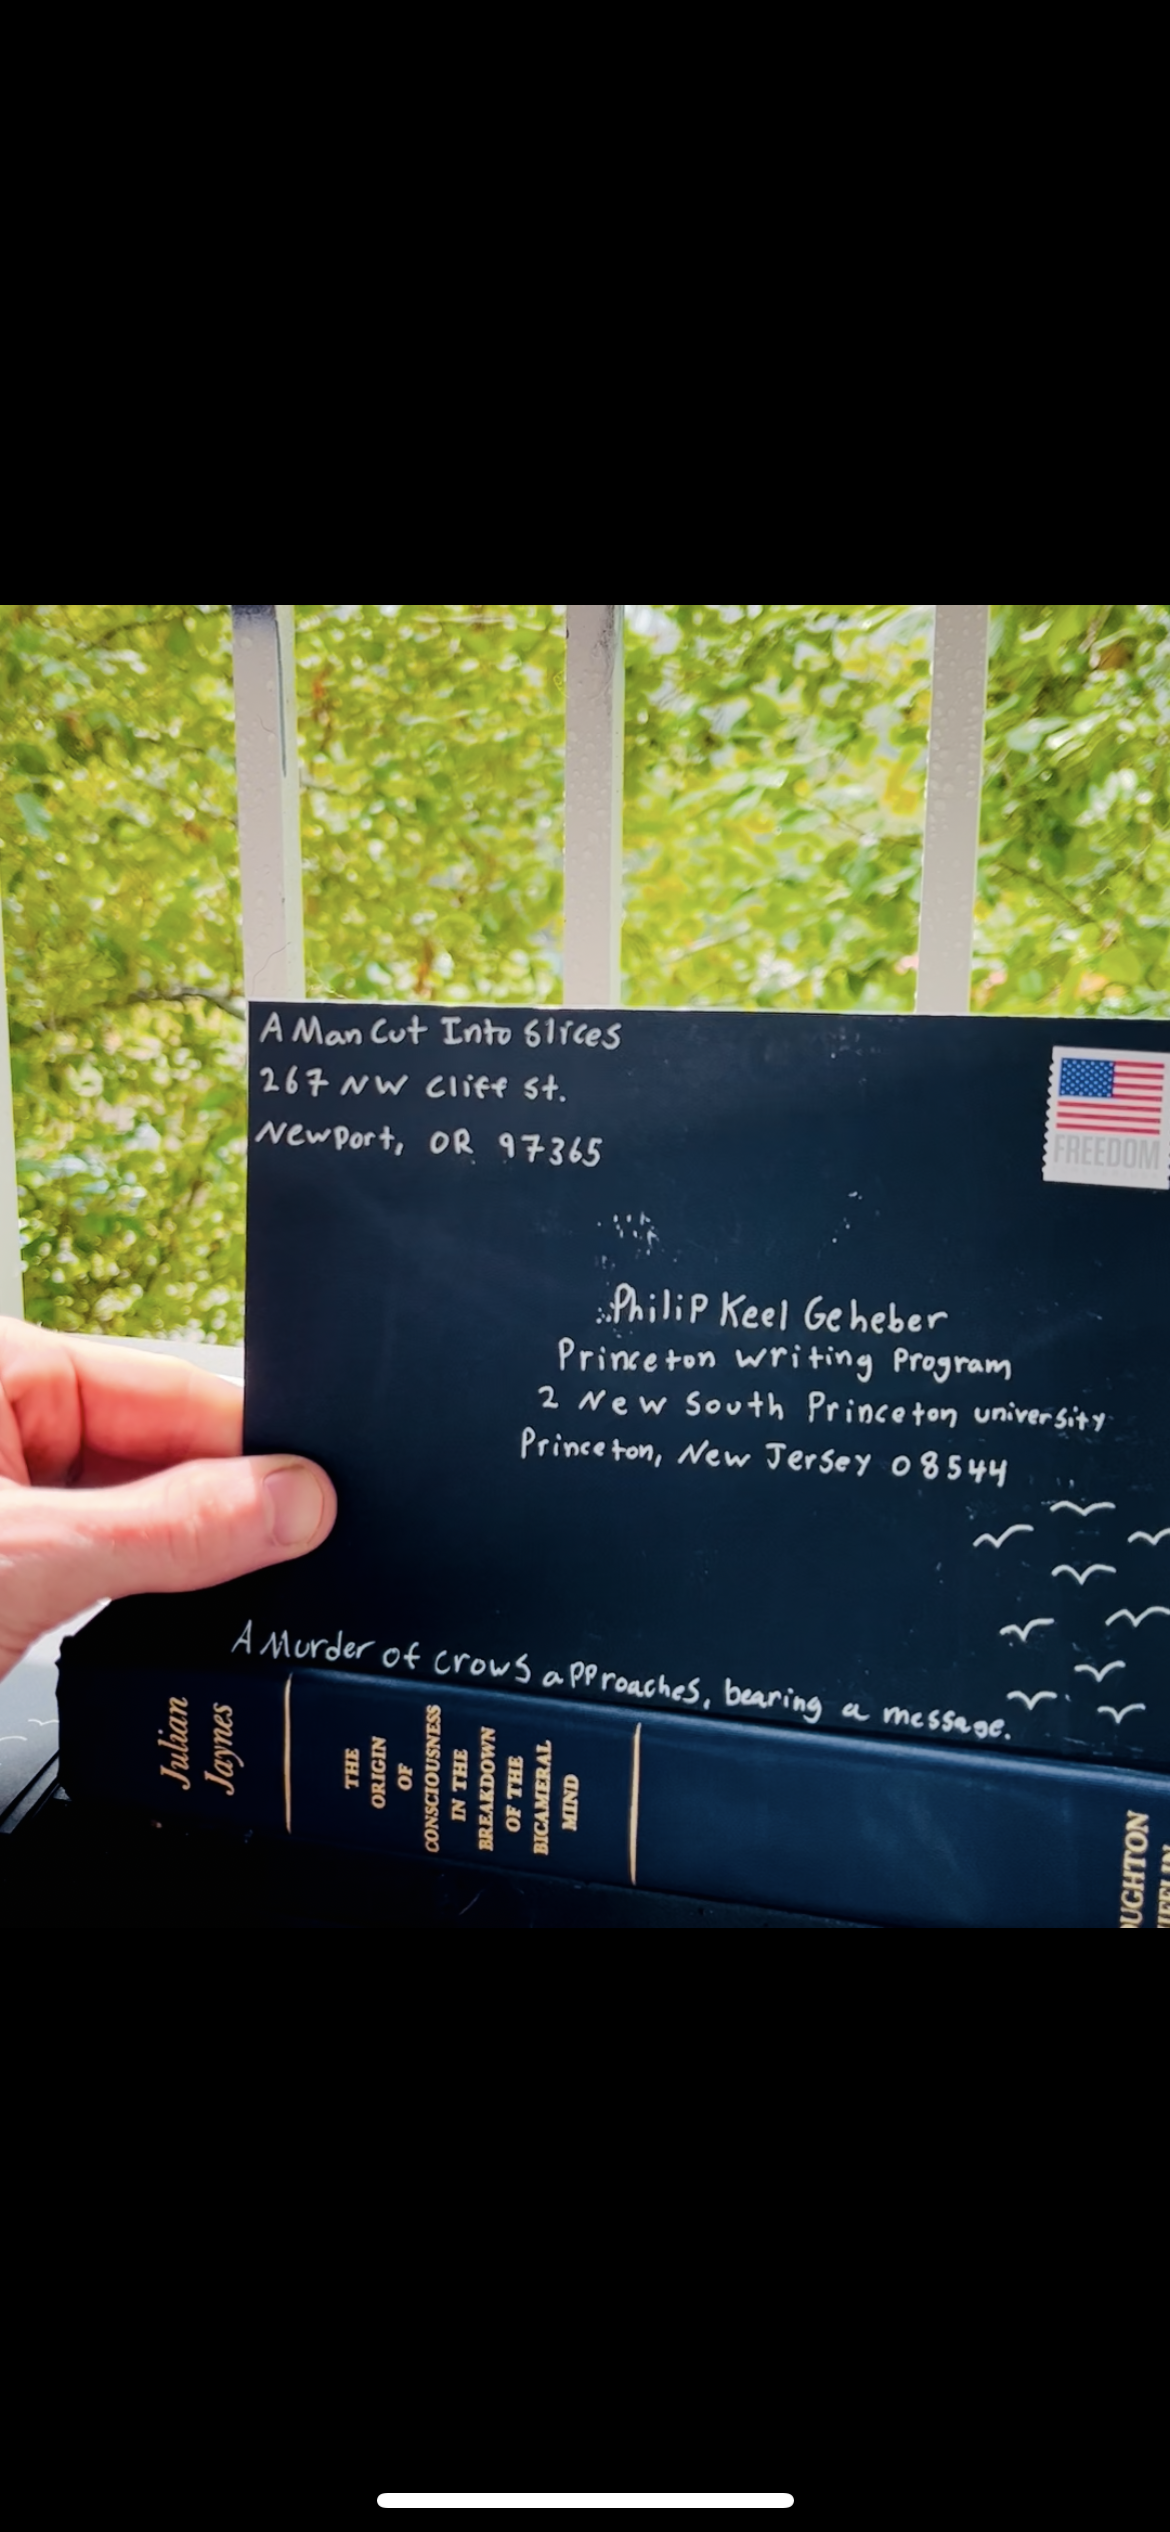 A Man Cut Into Slices
267 NW Cliff St.
Newport, OR 97365
FREEDOM
Philip Keel Geheber
Princeton Writing Program
2 New South Princeton University
Princeton, New Jersey 08544
A Murder of crows approaches, bearing a message.
Julian
Jaynes
THE
ORIGIN
OF
CONSCIOUSNESS
IN THE
BREAKDOWN
OF THE
BICAMERAL
MIND
OUGHTON